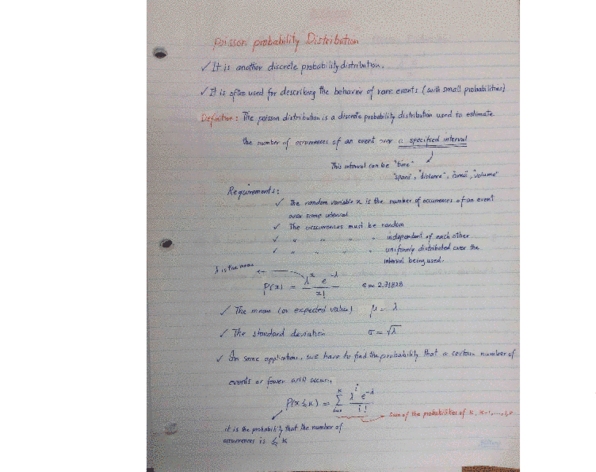 Poisson probability Distribution
✓ It is another discrete probability distribution.
✓ It is often used for describing the behavior of rare events (with small probabilities)
Definition: The poisson distribution is a discrete probability distribution used to estimate
the number of occurrences of an event over a specified interval
This interval can be "time"
"space", "distance", "area", "volume"
Requirements:
✓ The random variable x is the number of occurrences of an event
over some interval
✓ The occurrences must be random
✓ " " " " independent of each other
✓ " " " " uniformly distributed over the
interval being used.
λ is the mean
P(x) = λ^x e^-λ / x!   e = 2.71828
✓ The mean (or expected value) μ = λ
✓ The standard deviation σ = √λ
✓ In some application, we have to find the probability that a certain number of
events or fewer will occur,
P(x ≤ K) = Σ λ^i e^-λ / i!
sum of the probabilities of K, K-1, ..., 0
it is the probability that the number of
occurrences is ≤ K